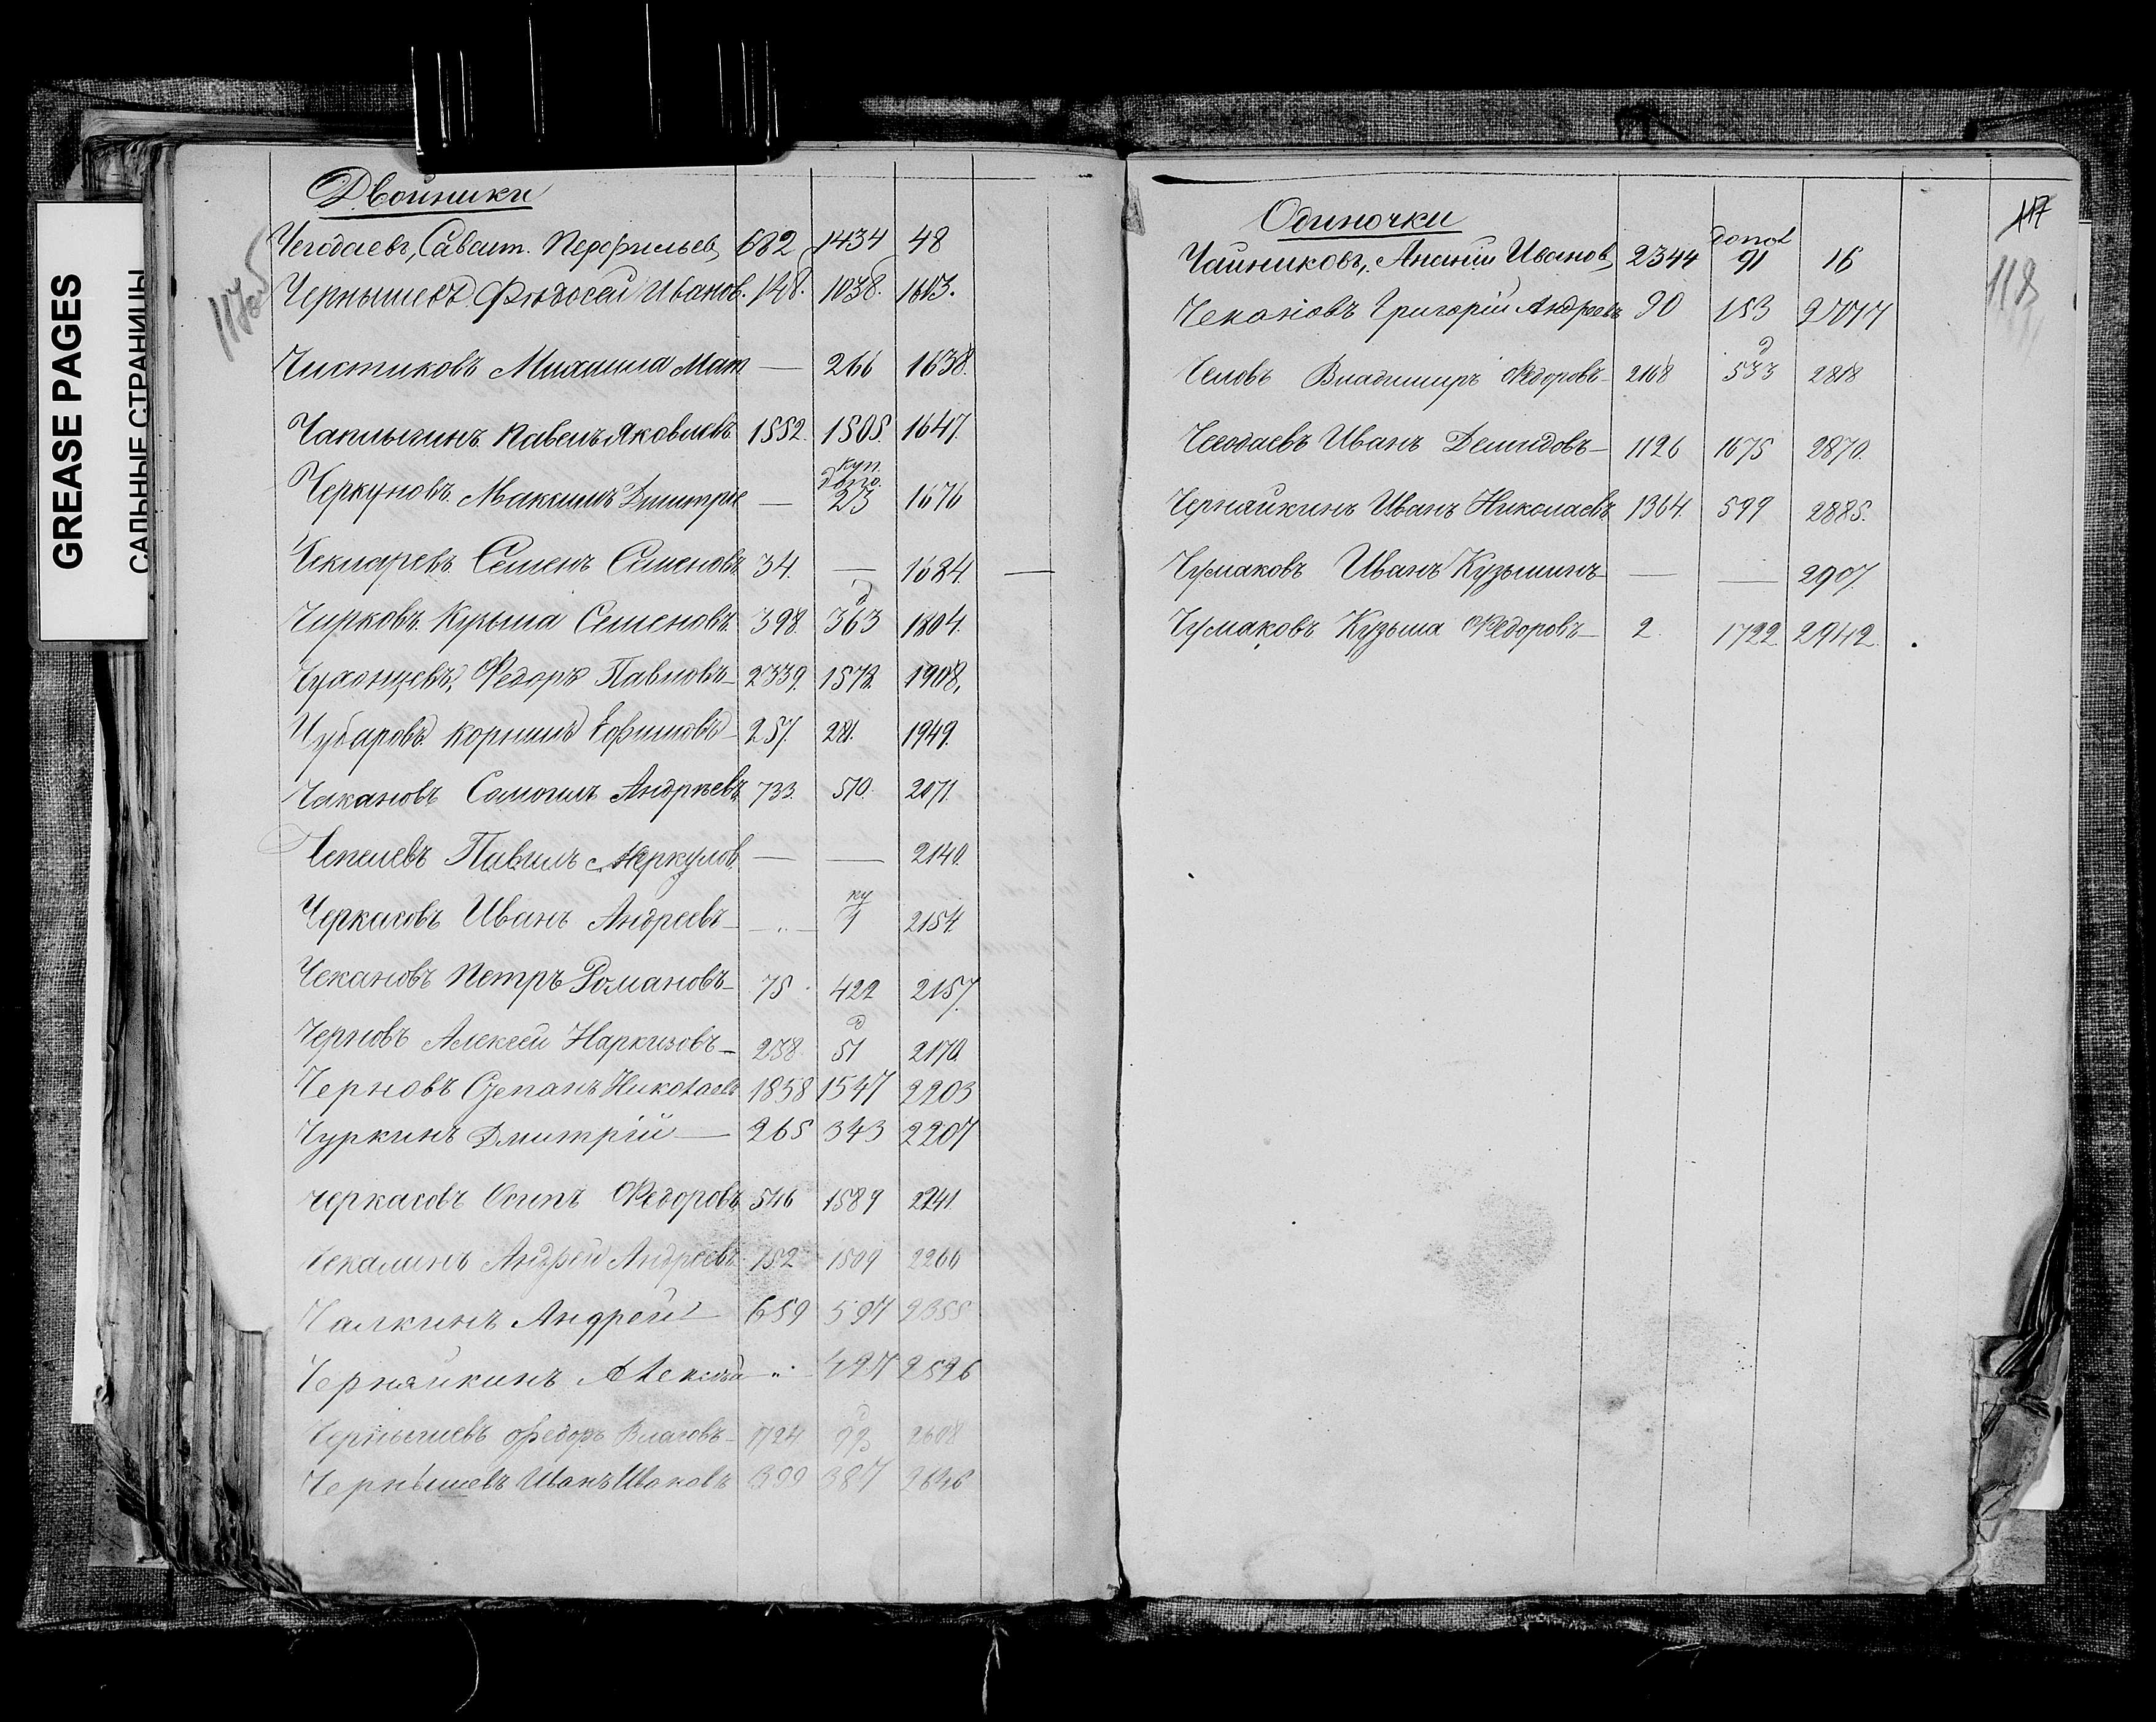 GREASE PAGES
САЛЬНЫЕ СТРАНИЦЫ
117об
Двойники
Чегодаевъ, Сават. Перфильев 682 1434 48
Чернышевъ Фѣдосей Иванов. 148. 1038. 1613.
Чистиковъ Михаила Мат — 266 1638.
Чаплыгинъ Павелъ Яковлевъ 1552. 1505. 1647.
куп.
Черкуновъ Максимъ Дмитрiе — 23 1676
Чекмаревъ Семенъ Семеновъ 34. — 1684 —
д
Чирковъ Кузьма Семеновъ 398. 363 1804.
Чухонцевъ, Федоръ Павловъ 2339. 1573. 1908.
Чубаровъ Корнилъ Ефимовъ 257. 281. 1949.
Чакановъ Самоилъ Андреевъ 733. 570. 2071.
Чепелевъ Павелъ Меркулов — — 2140.
ку
Черкасовъ Иванъ Андреевъ — „ — 1 2154.
Чекановъ Петръ Романовъ 75 422 2157.
д
Черновъ Алексей Наркизовъ 238 51 2170.
Черновъ Степанъ Николаевъ 1858 1547 2203
Чуркинъ Дмитрiй — 265 343 2207
Черкасовъ Осипъ Федоровъ 546 1589 2241.
Чекалинъ Андрей Андреевъ 152 1509 2266
Чалкинъ Андрей 659 597 2355
Черняйкинъ Алексѣй „ 427 2526
д
Чернышевъ Федоръ Власовъ 1724 93 2608
Чернышевъ Иванъ Ивановъ 399 387 2646
117
118
Одиночки
допол
Чайниковъ, Ананiй Иванов 2344 91 16
Чекановъ Григорiй Андреевъ 90 153 2707
д
Человъ Владимиръ Федоровъ 2168 533 2818
Чегодаевъ Иванъ Демидовъ 1126 1675 2870.
Черняйкинъ Иванъ Николаевъ 1364. 599 2885.
Чумаковъ Иванъ Кузьминъ — — 2907.
Чумаковъ Кузьма Федоровъ 2. 1722 2942.